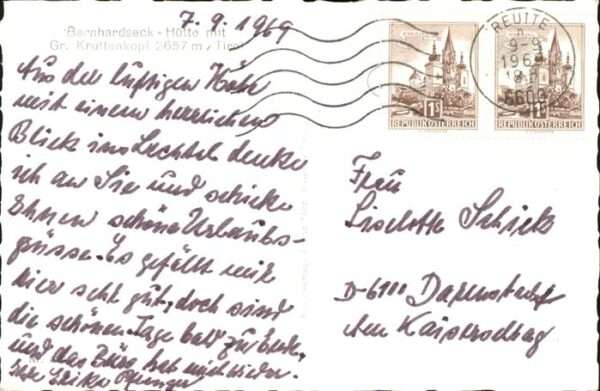 7. 9. 1969
Bernhardseck-Hütte mit
Gr. Krottenkopf 2657 m, Tirol
Aus der luftigen Höhe
mit einem herrlichen
Blick ins Lechtal denke
ich an Sie und schicke
Ihnen schöne Urlaubs-
grüsse. Es gefällt mir
hier sehr gut, doch sind
die schönen Tage bald zu Ende
und das Büro hat mich wieder.
Ihre
REUTTE
9-9
6600
1S
REPUBLIK ÖSTERREICH
1S
REPUBLIK ÖSTERREICH
Frau
Liselotte Schick
D-6100 Darmstadt
Am Kaiserschlag